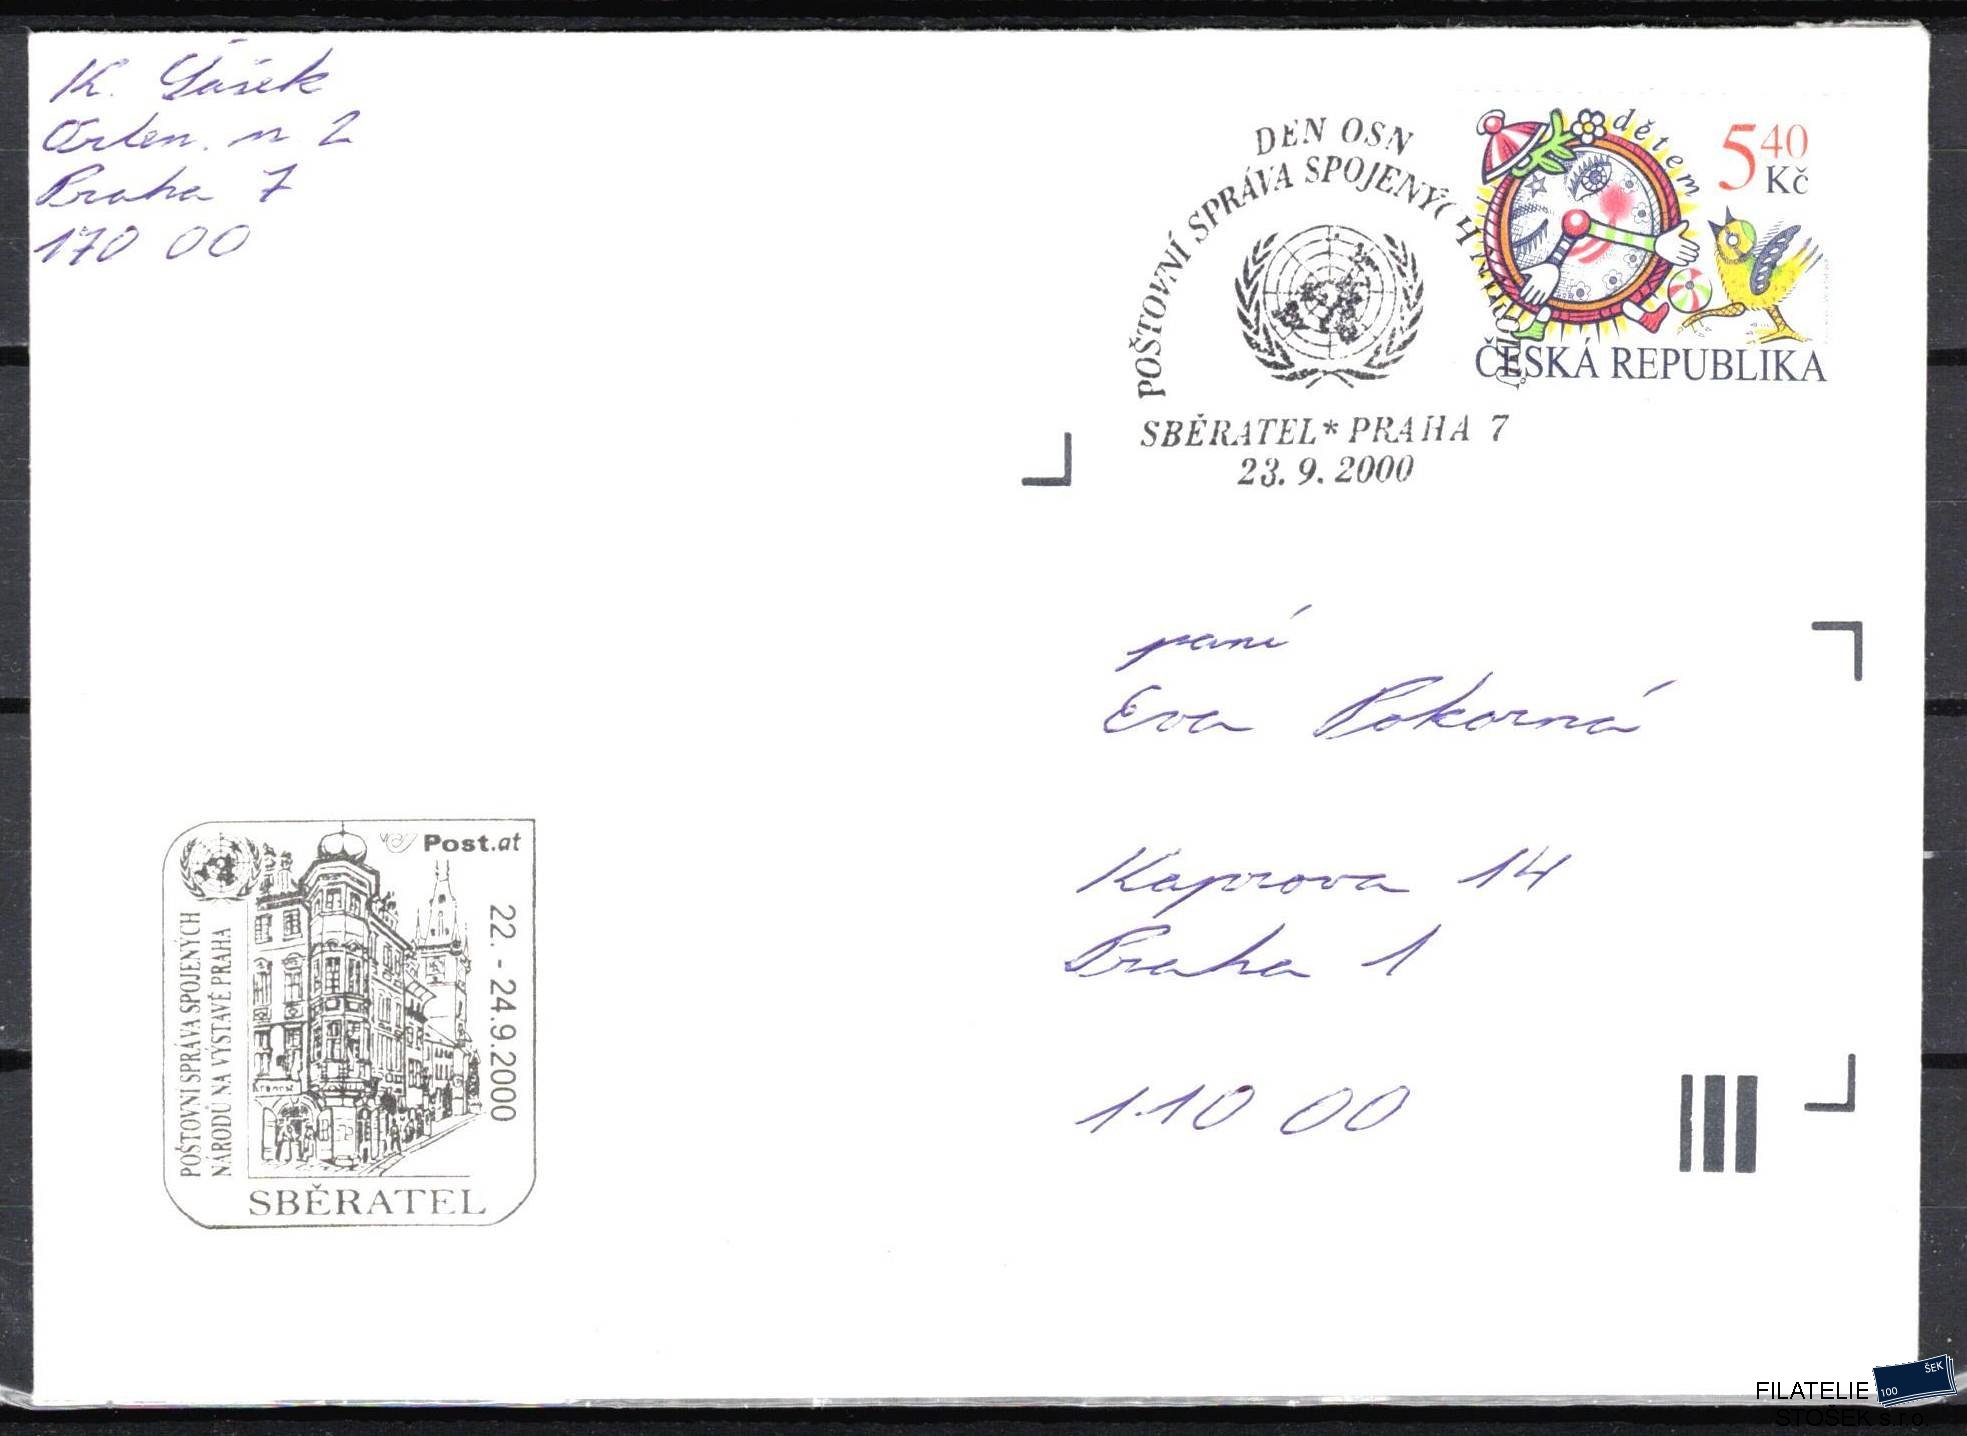 K. Lášek
Orten. n. 2
Praha 7
170 00
DEN OSN
POŠTOVNÍ SPRÁVA SPOJENÝCH NÁRODŮ
SBĚRATEL * PRAHA 7
23. 9. 2000
dětem
5 40
Kč
ČESKÁ REPUBLIKA
paní
Eva Pokorná
Kaprova 14
Praha 1
110 00
Post.at
POŠTOVNÍ SPRÁVA SPOJENÝCH
NÁRODŮ NA VÝSTAVĚ PRAHA
22. - 24.9.2000
SBĚRATEL
FILATELIE
STOŠEK s.r.o.
100
ŠEK